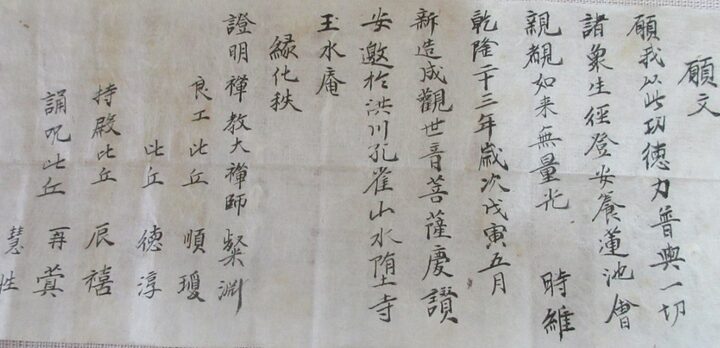 願文
願我以此功德力普與一切
諸衆生徑登安養蓮池會
親覩如来無量光 時維
乾隆二十三年歲次戊寅五月
新造成觀世音菩薩慶讃
安邀於洪川孔雀山水墮寺
玉水庵
緣化秩
證明禪教大禪師 粲淵
良工比丘 順瓊
比丘 德淳
持殿比丘 辰禧
誦呪比丘 再
慧性